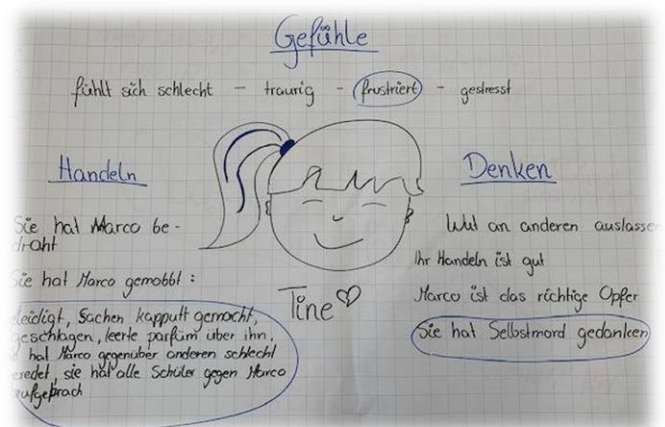 Gefühle
fühlt sich schlecht – traurig – frustriert – gestresst
Handeln
Sie hat Marco be-
droht
Sie hat Marco gemobbt :
leidigt, Sachen kapputt gemacht,
eschlagen, leerte parfüm über ihn,
hat Marco gegenüber anderen schlecht
eredet, sie hat alle Schüler gegen Marco
aufgeprach
Tine
Denken
Wut an anderen auslassen
Ihr Handeln ist gut
Marco ist das richtige Opfer
Sie hat Selbstmord gedanken